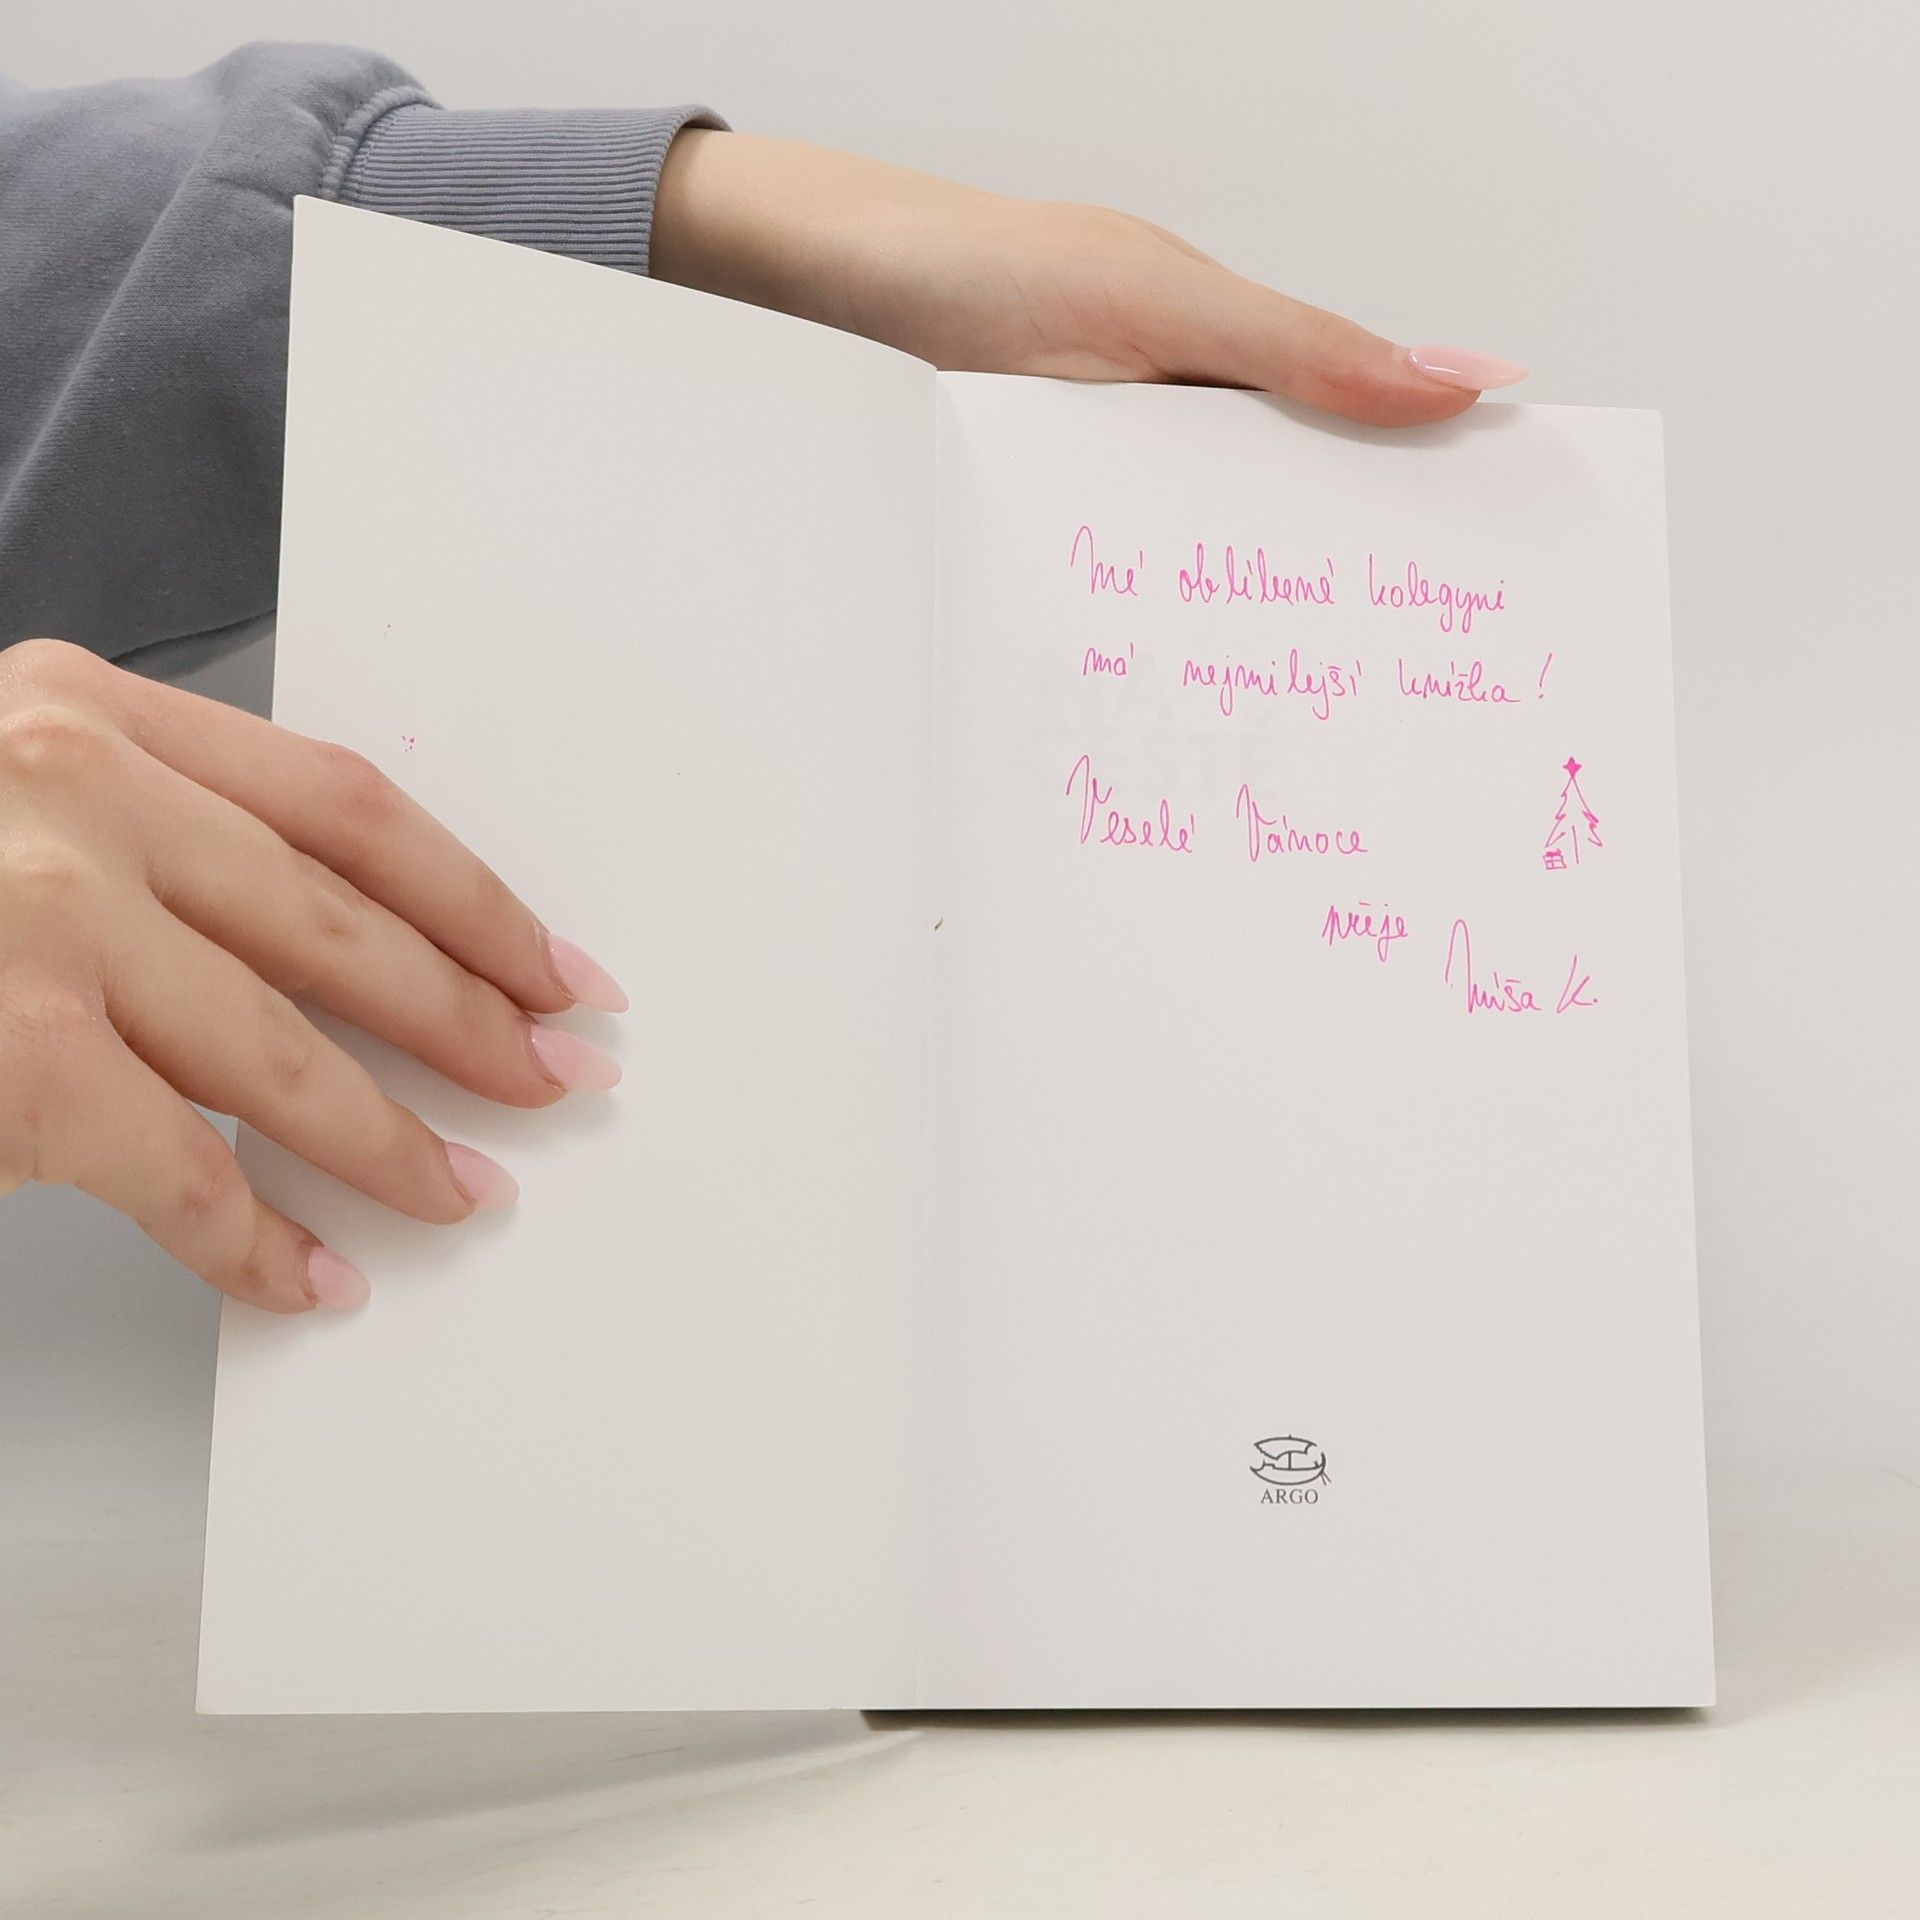 Mé oblíbené kolegyni
má nejmilejší knížka!
Veselé Vánoce
přeje
Míša K.
ARGO